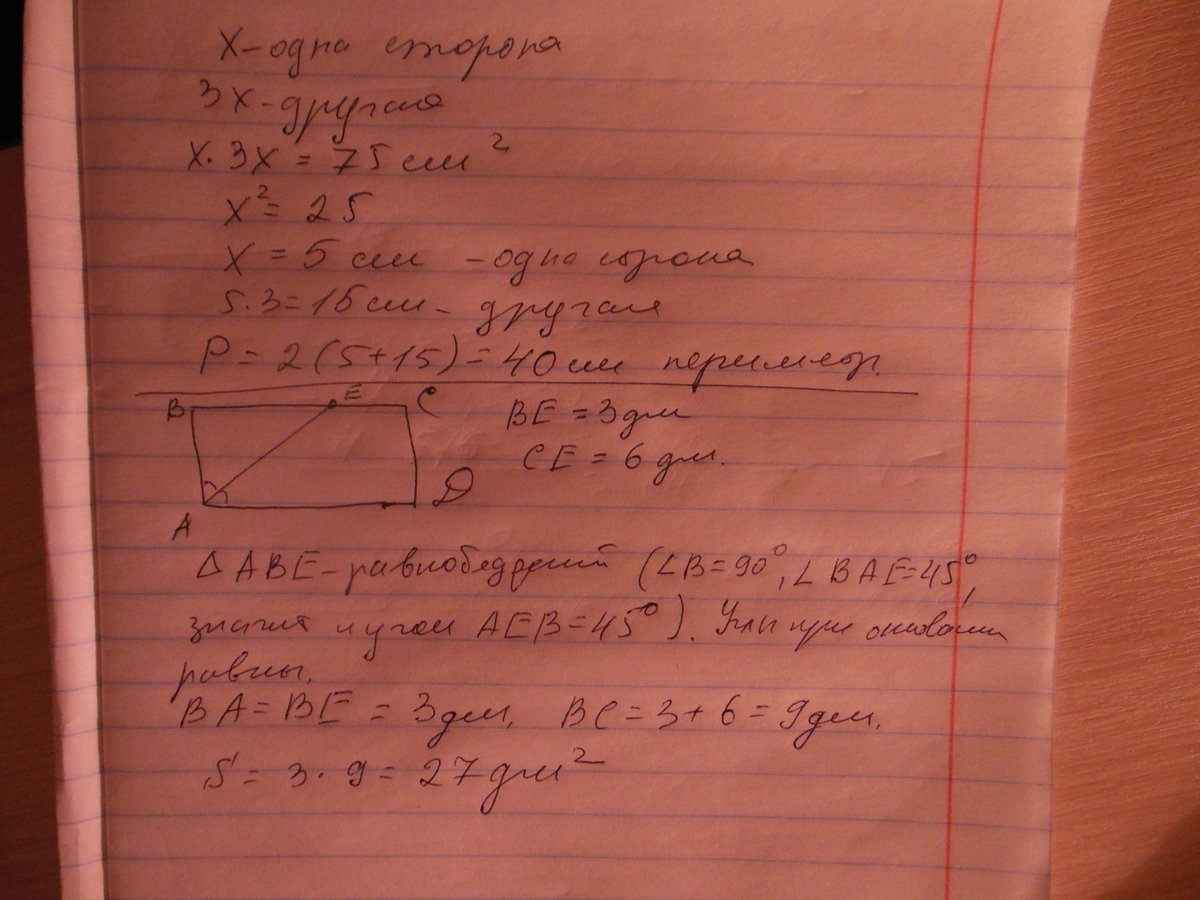 X-одна сторона
3X-другая
X·3X = 75 см²
X² = 25
X = 5 см -одна сторона
5·3=15см- другая
P = 2(5+15)=40см периметр.
B E C BE = 3дм
CE = 6 дм.
A D
Δ ABE-равнобедрений (∠B=90°, ∠BAE=45°,
значит и угол AEB=45°). Углы при основании
равны.
BA=BE = 3дм, BC=3+6=9дм.
S = 3·9=27дм²